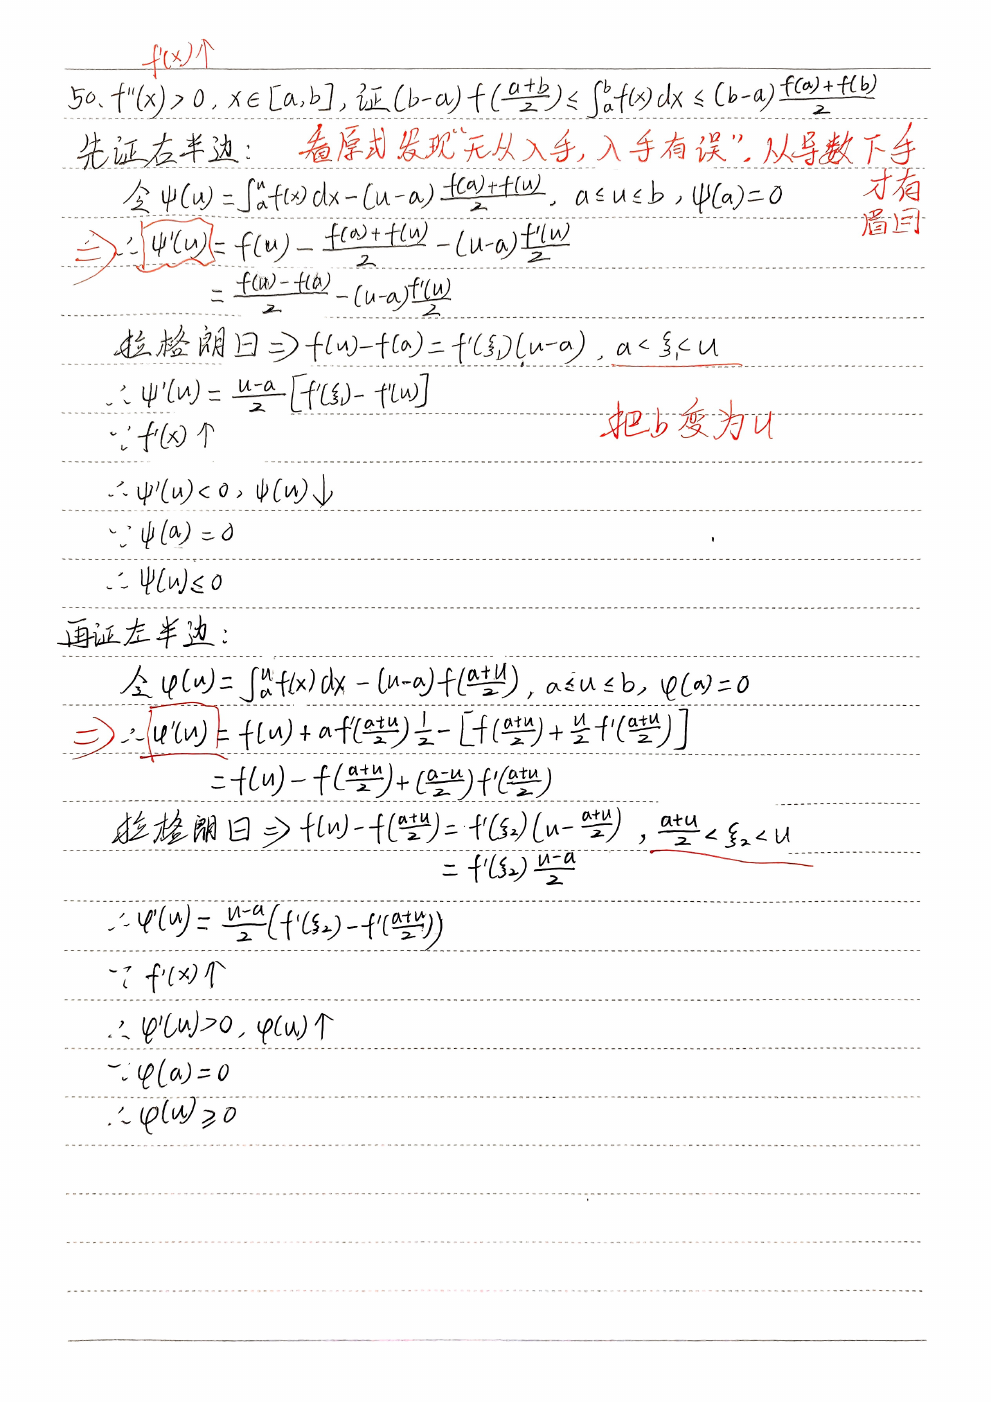 f'(x)↑
50、f''(x)>0, x∈[a,b], 证(b-a)f(\frac{a+b}{2})≤∫_a^b f(x)dx≤(b-a)\frac{f(a)+f(b)}{2}
先证右半边: 看原式发现“无从入手,入手有误”. 从导数下手
才有
眉目
令ψ(u)=∫_a^u f(x)dx-(u-a)\frac{f(a)+f(u)}{2}, a≤u≤b, ψ(a)=0
⇒∴ψ'(u)=f(u)-\frac{f(a)+f(u)}{2}-(u-a)\frac{f'(u)}{2}
=\frac{f(u)-f(a)}{2}-(u-a)\frac{f'(u)}{2}
拉格朗日⇒f(u)-f(a)=f'(ξ₁)(u-a), a<ξ₁<u
∴ψ'(u)=\frac{u-a}{2}[f'(ξ₁)-f'(u)]
把b变为u
∵f'(x)↑
∴ψ'(u)<0, ψ(u)↓
∵ψ(a)=0
∴ψ(u)≤0
再证左半边:
令φ(u)=∫_a^u f(x)dx-(u-a)f(\frac{a+u}{2}), a≤u≤b, φ(a)=0
⇒∴φ'(u)=f(u)+af'(\frac{a+u}{2})\frac{1}{2}-[f(\frac{a+u}{2})+\frac{u}{2}f'(\frac{a+u}{2})]
=f(u)-f(\frac{a+u}{2})+(\frac{a-u}{2})f'(\frac{a+u}{2})
拉格朗日⇒f(u)-f(\frac{a+u}{2})=f'(ξ₂)(u-\frac{a+u}{2}), \frac{a+u}{2}<ξ₂<u
=f'(ξ₂)\frac{u-a}{2}
∴φ'(u)=\frac{u-a}{2}(f'(ξ₂)-f'(\frac{a+u}{2}))
∵f'(x)↑
∴φ'(u)>0, φ(u)↑
∵φ(a)=0
∴φ(u)≥0